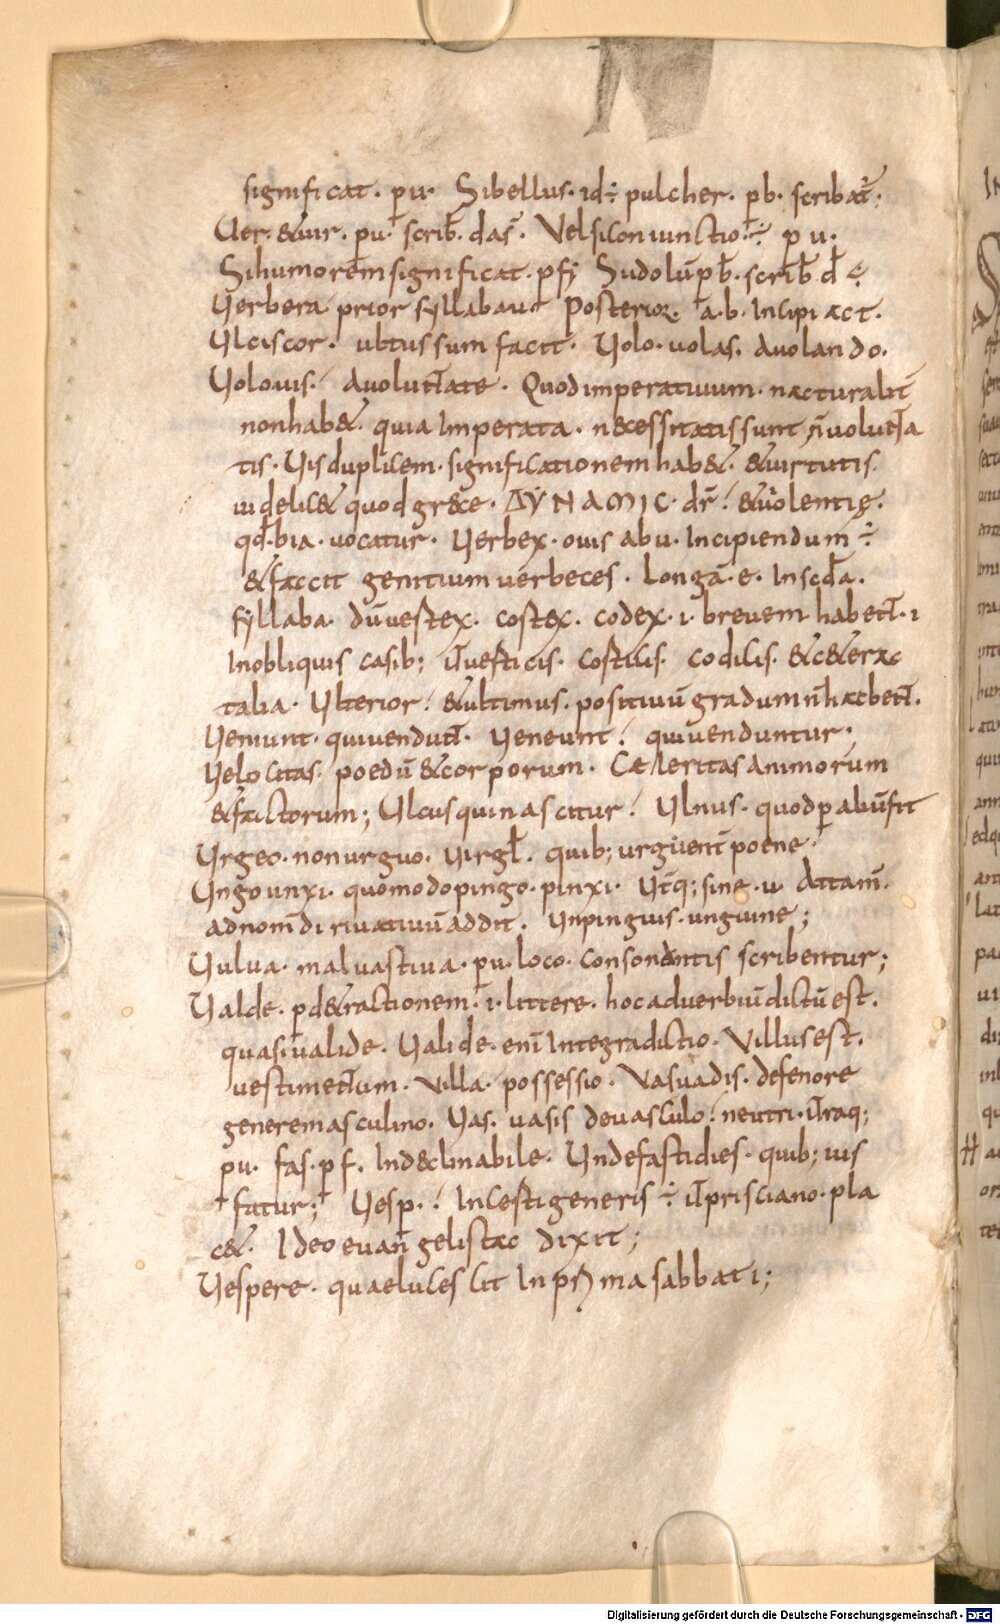 significat. pu. Si bellus. id÷ pulcher. pb. scribat̄;
Uer. &uir. pu. scrib̄. das̄. Vel si coniunctio.÷ p u.
Si humorem significat. p fy Sudolū p b̄. scrib̄ d
Uerbera prior syllaba u. Posterior a. b. Incipiat.
Ulciscor. ultus sum facit. Uolo. uolas. auolando.
Uolo uis. a uoluntate. Quod imperatiuum. naturalit̄
non hab&. quia Imperata. necessitatis sunt n̄ uolunta
tis. Uis duplicem. significationem hab&. &uirtutis.
uidelic& quod grece. ΔΥNAMIC. dr̄. &uiolentię.
qd̄. bia. uocatur. Uerbex. ouis ab u. Incipiendum ÷
&facit genitiuum uerbeces. Longā. e. In scda.
syllaba. dū uestex. costex. codex. i. breuem habent. i
In obliquis casib; ut uesticis. costicis. codicis. &c&era
talia. Ulterior. &ultimus. positiuū gradum n̄ habent.
Uemunt. qui uendunt. Ueneunt. qui uenduntur;
Uelocitas. poedū &corporum. Caeleritas animorum
&factorum; Ulcus qui nascitur. Ulnus. quod p ab ū fit
Urgeo. non urguo. uirgl̄. quib; urguent poene.
Ungo unxi. quomodo pingo. pinxi. Utq; sine. u. Attam̄.
ad nom̄ diriuatiuū addit. Un pinguis. unguine;
Uulua. malua stiua. p u. loco. consonantis scribentur;
Ualde. p d&ractionem. i. littere. hoc aduerbiū dictū est.
quasi ualide. Ualide. enī Integra dictio. Villus est.
uestimentum. Villa. possessio. Vas uadis. defenore
genere masculino. Uas. uasis de uasculo. neutri. utraq;
p u. fas. p f. Ind&clinabile. Unde fasti dies. quib; ius
fatur; Uesp. Incesti generis ÷ ut prisciano. pla
c&. Ideo euangelista dixit;
Uespere. quae lucescit In prima sabbati;
Digitalisierung gefördert durch die Deutsche Forschungsgemeinschaft - DFG